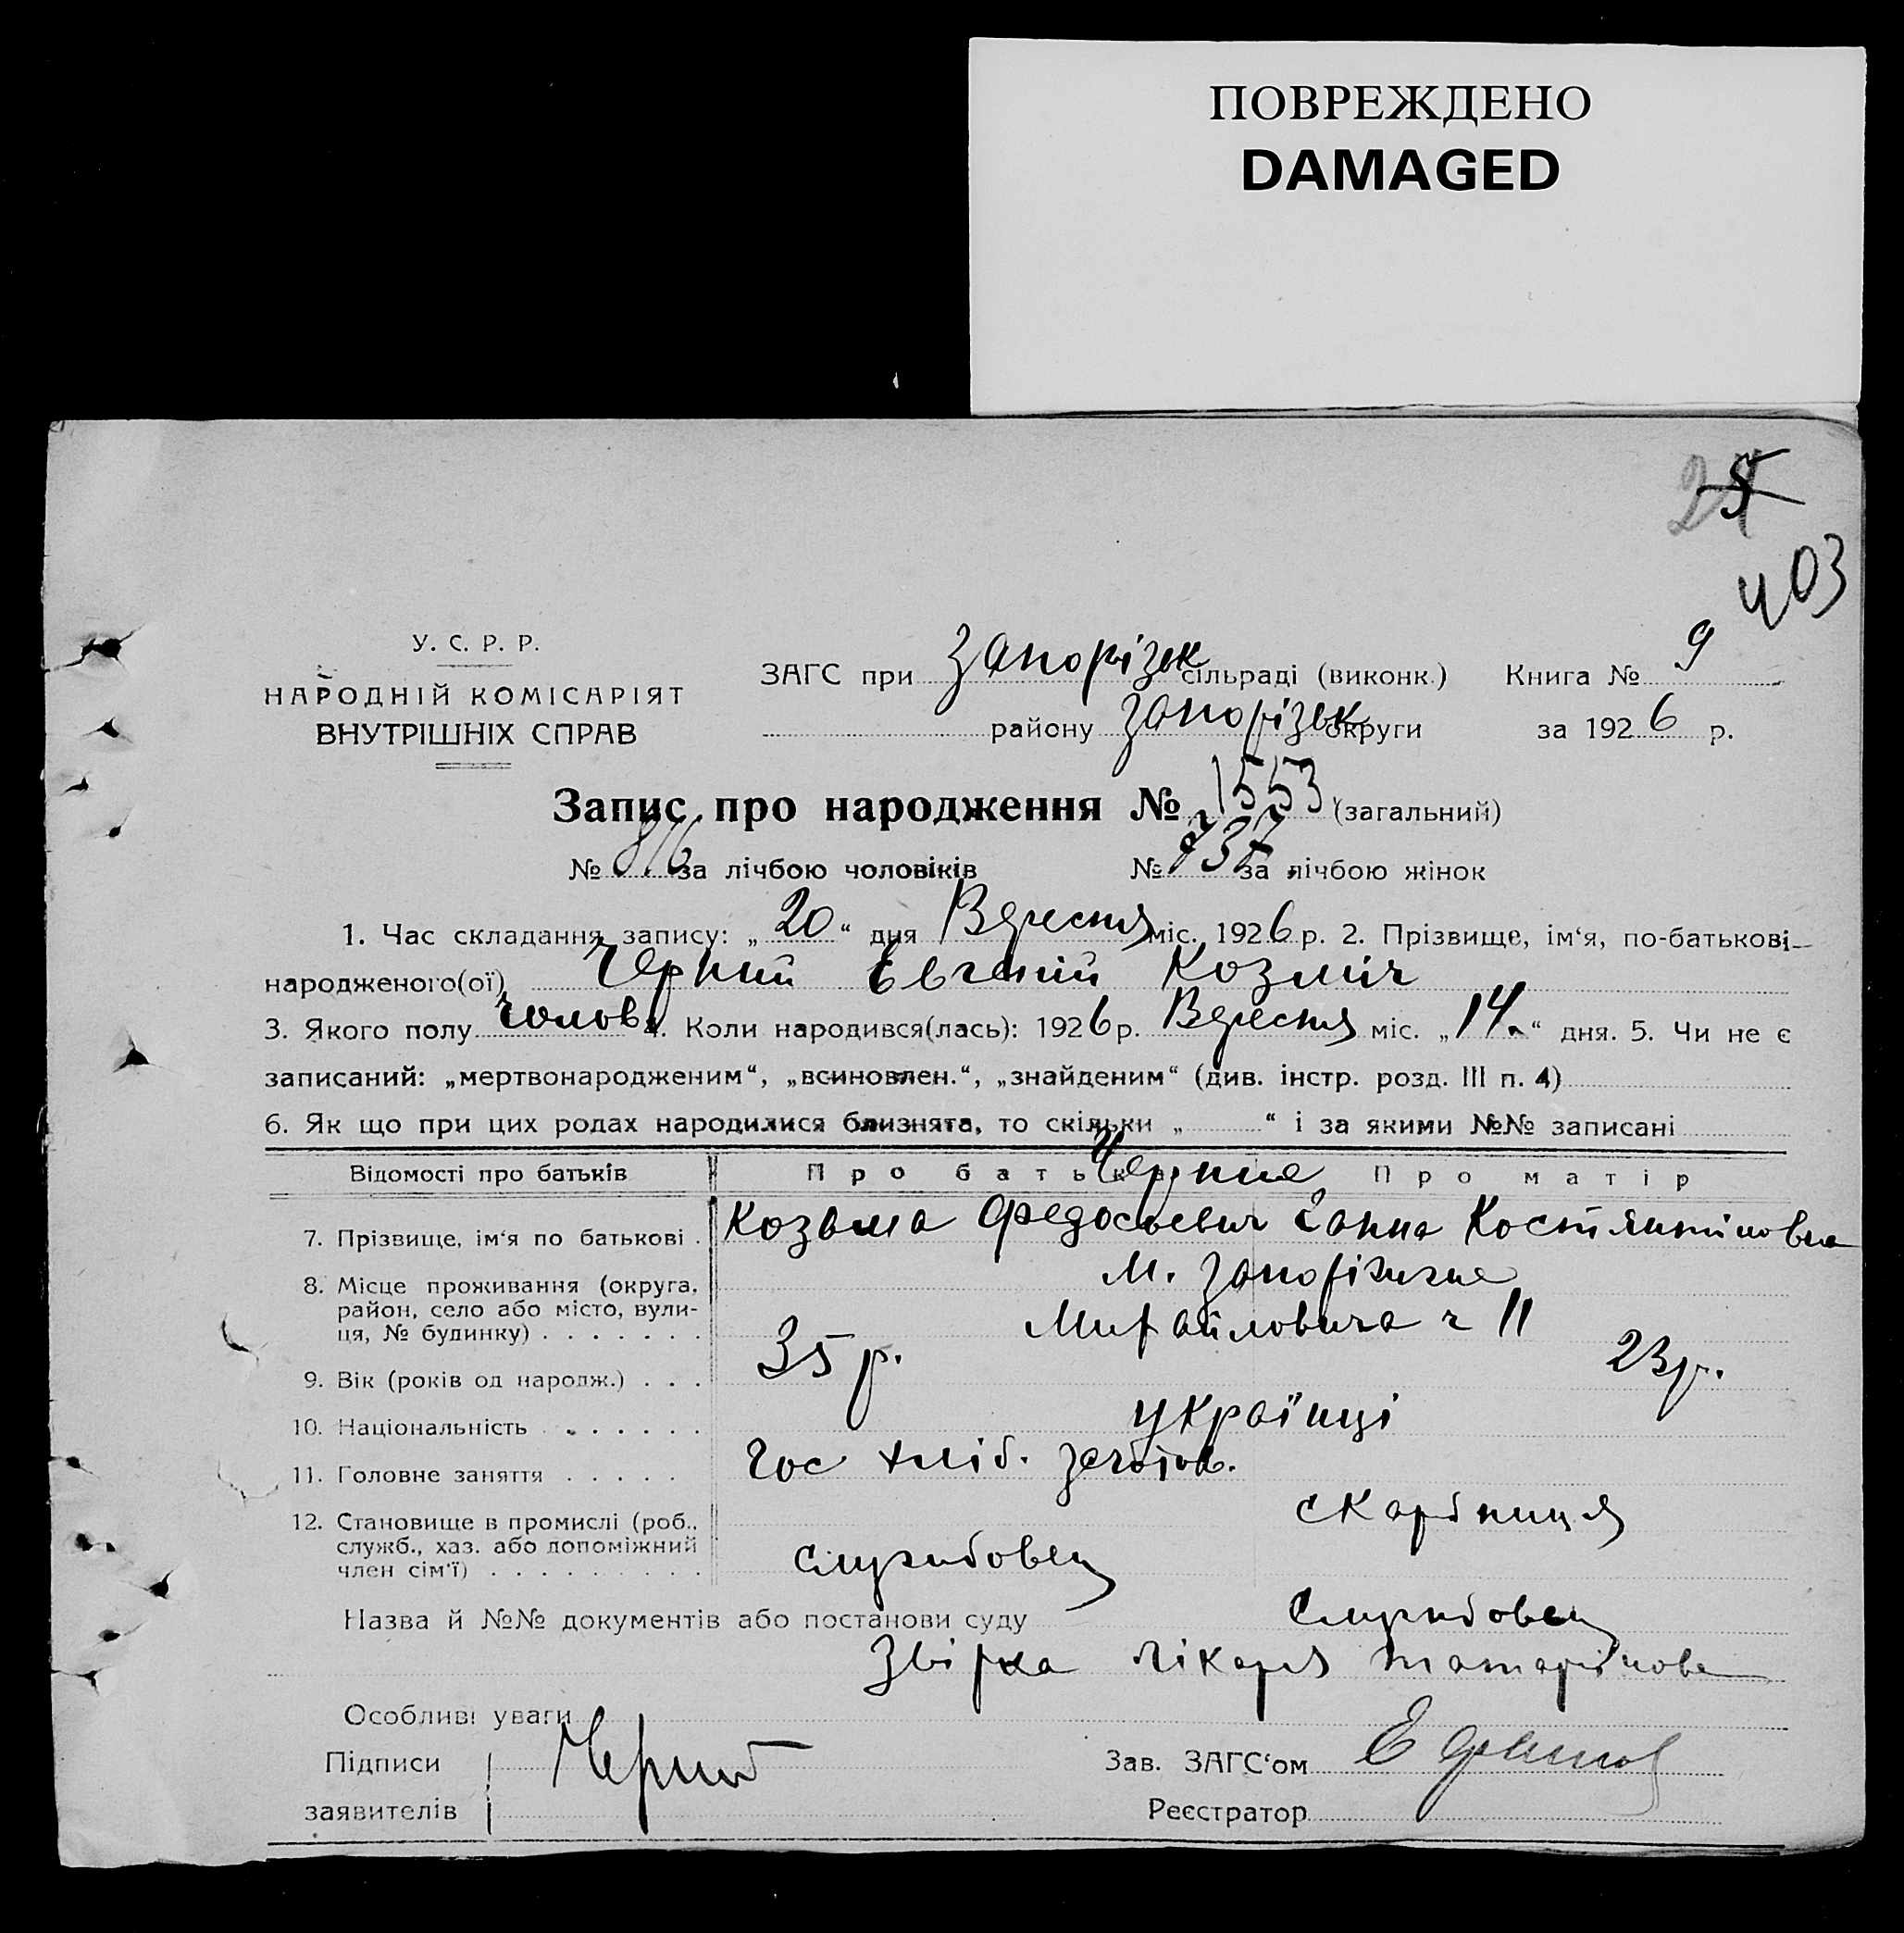 ПОВРЕЖДЕНО
DAMAGED
403
У. С. Р. Р.
НАРОДНІЙ КОМІСАРІЯТ
ВНУТРІШНІХ СПРАВ
ЗАГС при Запорізьк сільраді (виконк.) Книга № 9
району Запорізьк округи за 1926 р.
Запис про народження № 1553 (загальний)
№ 816 за лічбою чоловіків № 737 за лічбою жінок
1. Час складання запису: „20“ дня Вересня міс. 1926 р. 2. Прізвище, ім‘я, по-батькові
народженого(ої) Черний Евгеній Козміч
3. Якого полу чолов. 4. Коли народився(лась): 1926 р. Вересня міс. „14“ дня. 5. Чи не є
записаний: „мертвонародженим“, „всиновлен.“, „знайденим“ (див. інстр. розд. III п. 4)
6. Як що при цих родах народилися близнята, то скільки „ “ і за якими №№ записані
Відомості про батьків Про батька Про матір
Черние
7. Прізвище, ім‘я по батькові . Козьма Федосьевич Ганна Костянтиновна
8. Місце проживання (округа, район, село або місто, вулиця, № будинку) . . . . . . . м. Запоріжже
Михайловича 11
9. Вік (років од народж.) . . . 35 р. 23 р.
10. Національність . . . . . . . українці
11. Головне заняття . . . . . Гос хліб. загото́в.
скарбниця
12. Становище в промислі (роб., служб., хаз. або допоміжний член сім‘ї) . . . . . . . . . службовец
Назва й №№ документів або постанови суду службовец
Звірка лікаря
Особливі уваги
Підписи заявителів Черний
Зав. ЗАГС‘ом
Реєстратор